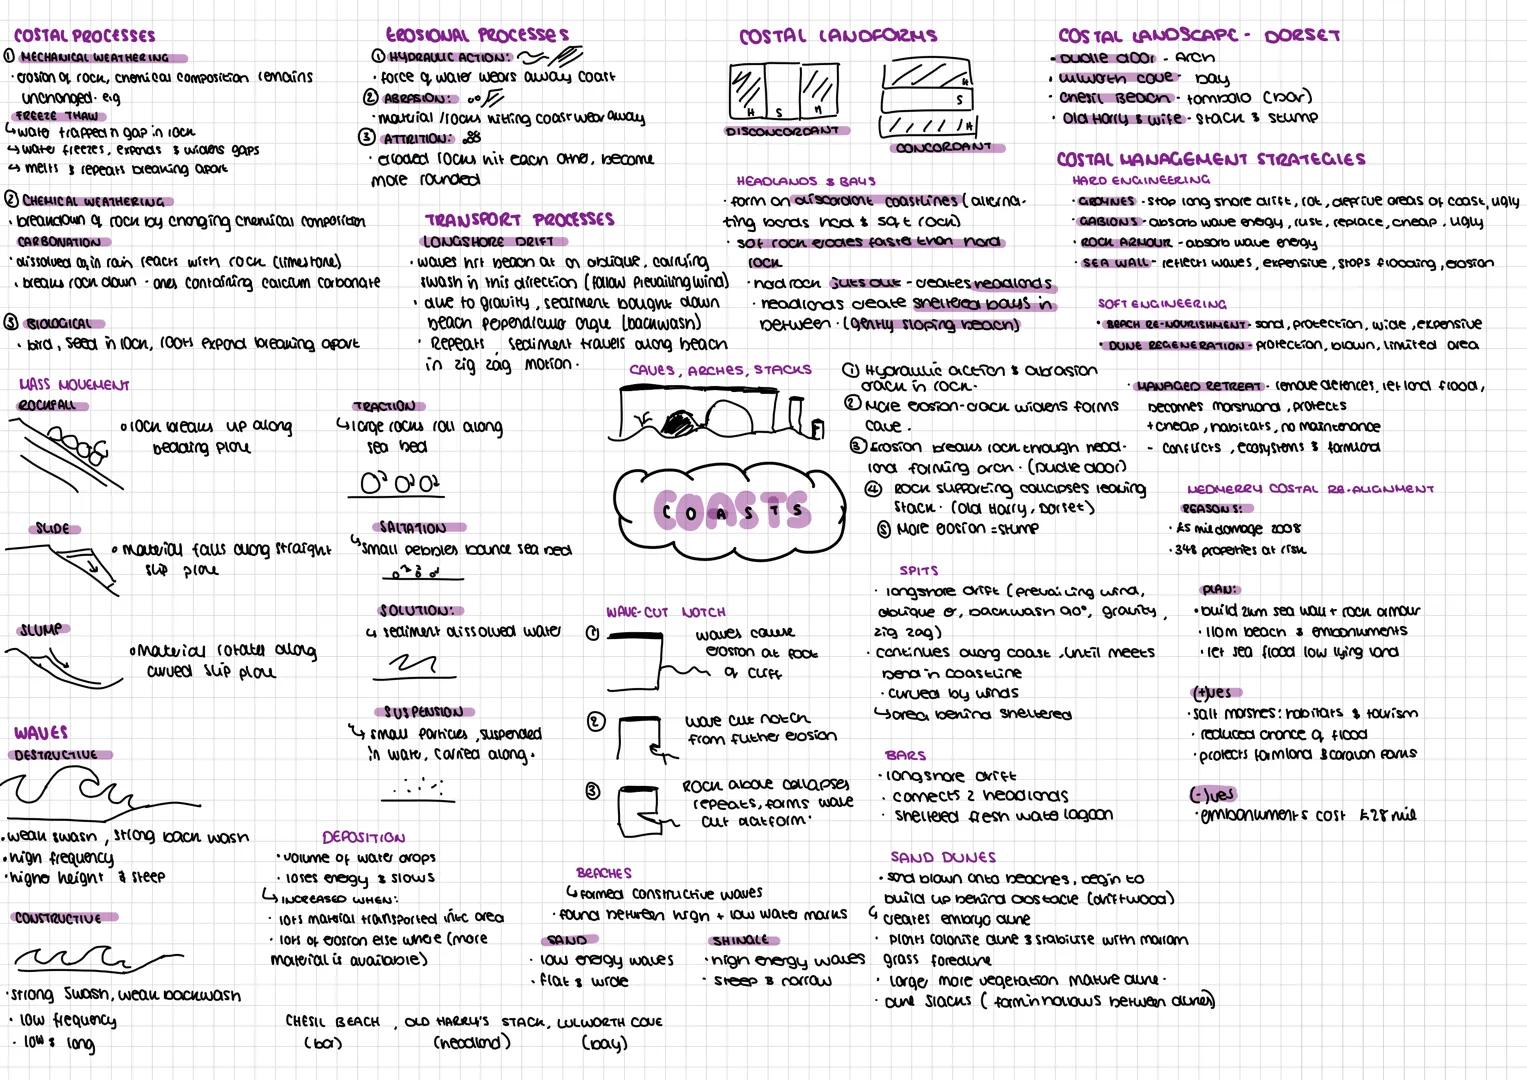 COSTAL PROCESSES
① MECHANICAL WEATHERING
· erosion of rock, chemical composition remains
unchanged. e.g
FREEZE THAW
↳ water trapped in gap in rock
↳ water freezes, expands & widens gaps
↳ melts & repeats breaking apart
② CHEMICAL WEATHERING
· breakdown of rock by changing chemical composition
CARBONATION
· dissolved in rain reacts with rock (limestone)
· breaks rock down - ones containing calcium carbonate
③ BIOLOGICAL
· bird, seed in rock, roots expand breaking apart
MASS MOVEMENT
ROCKFALL
• rock breaks up along
bedding plane
SLIDE
• material falls along straight
slip plane
SLUMP
• Material rotates along
curved slip plane
WAVES
DESTRUCTIVE
· weak swash, strong back wash
· high frequency
· higher height & steep
CONSTRUCTIVE
· strong swash, weak backwash
· low frequency
· low & long
EROSIONAL PROCESSES
① HYDRAULIC ACTION:
· force of water wears away coast
② ABRASION:
· material / rocks hitting coast wear away
③ ATTRITION:
· eroded rocks hit each other, become
more rounded
TRANSPORT PROCESSES
LONGSHORE DRIFT
· waves hit beach at an oblique, carrying
swash in this direction (follow prevailing wind)
· due to gravity, sediment bought down
beach perpendicular angle (backwash)
· Repeats, sediment travels along beach
in zig zag motion.
TRACTION
↳ large rocks roll along
sea bed
SALTATION
↳ small pebbles bounce sea bed
SOLUTION:
↳ sediment dissolved water
SUSPENSION
↳ small particles, suspended
in water, carried along.
DEPOSITION
· volume of water drops
· loses energy & slows
↳ INCREASED WHEN:
· lots material transported into area
· lots of erosion else where (more
material is available)
CHESIL BEACH, OLD HARRY'S STACK, LULWORTH COVE
(bar) (headland) (bay)
COSTAL LANDFORMS
H S H
DISCONCORDANT
H
S
H
CONCORDANT
HEADLANDS & BAYS
· form on discordant coastlines (alterna-
ting bands hard & soft rock)
· soft rock erodes faster than hard
rock
· hard rock juts out - creates headlands
· headlands create sheltered bays in
between. (gently sloping beach)
CAVES, ARCHES, STACKS
① Hydraulic action & abrasion
crack in rock.
② More erosion-crack widens forms
cave.
③ Erosion breaks rock through head-
land forming arch. (Durdle door)
④ ROCK supporting collapses leaving
stack. (old Harry, Dorset)
⑤ More erosion = stump
COASTS
WAVE-CUT NOTCH
① waves cause
erosion at foot
of cliff
② wave cut notch
from futher erosion
③ ROCK above collapses
repeats, forms wave
cut platform.
BEACHES
↳ formed constructive waves
· found between high + low water marks
SAND
· low energy waves
· flat & wide
SHINGLE
· high energy waves
· steep & narrow
SPITS
· longshore drift (prevailing wind,
oblique θ, backwash 90°, gravity,
zig zag)
· continues along coast, until meets
bend in coastline
· curved by winds
↳ area behind sheltered
BARS
· longshore drift
· connects 2 headlands
· sheltered fresh water lagoon
SAND DUNES
· sand blown onto beaches, begin to
build up behind obstacle (driftwood)
↳ creates embryo dune
· plants colonise dune & stabilise with marram
grass foredune
· large, more vegetation mature dune.
· dune slacks (form in hollows between dunes)
COSTAL LANDSCAPE - DORSET
· Durdle door - Arch
· lulworth cove - bay
· chesil Beach - tombolo (bar)
· Old Harry & wife - stack & stump
COSTAL MANAGEMENT STRATEGIES
HARD ENGINEERING
· GROYNES - stop long shore drift, rot, deprive areas of coast, ugly
· GABIONS - absorb wave energy, rust, replace, cheap, ugly
· ROCK ARMOUR - absorb wave energy
· SEA WALL - reflects waves, expensive, stops flooding, erosion
SOFT ENGINEERING
· BEACH RE-NOURISHMENT - sand, protection, wide, expensive
· DUNE REGENERATION - protection, blown, limited area
· MANAGED RETREAT - remove defences, let land flood,
becomes marshland, protects
+ cheap, habitats, no maintenance
- conflicts, ecosystems & farmland
MEDMERRY COSTAL RE-ALIGNMENT
REASONS:
· £5 mil damage 2008
· 348 properties at risk
PLAN:
· build 2km sea wall + rock armour
· 110m beach & embankments
· let sea flood low lying land
(+)ves
· salt marshes: habitats & tourism
· reduced chance of flood
· protects farmland & caravan parks
(-)ves
· embankments cost £28 mil